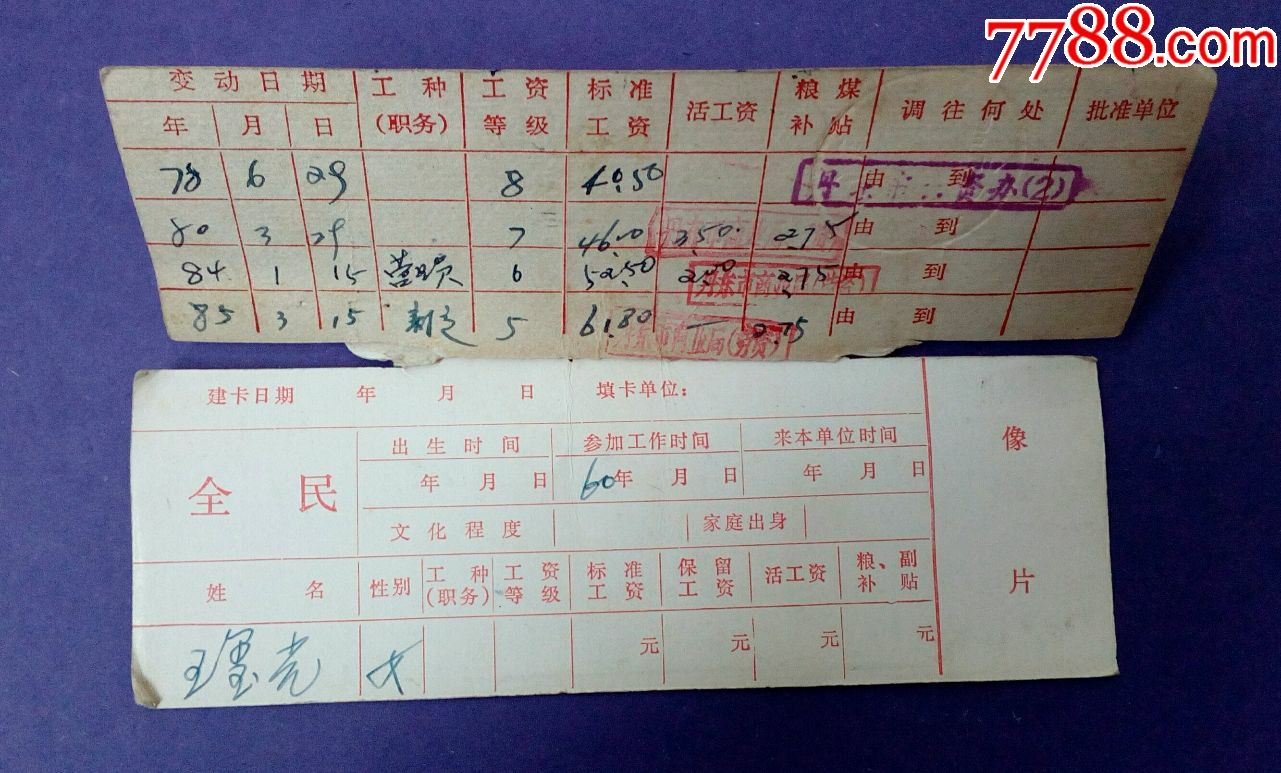 7788.com
变动日期 工种(职务) 工资等级 标准工资 活工资 粮煤补贴 调往何处 批准单位
年 月 日
78 6 29 8 40.50 由 到
80 3 29 7 46.00 2.50 2.75 由 到
84 1 15 6 52.50 2.50 2.75 由 到
85 3 15 5 61.80 — 2.75 由 到
丹东市商业局(劳资)
建卡日期 年 月 日 填卡单位:
全民
出生时间 参加工作时间 来本单位时间
年 月 日 60年 月 日 年 月 日
文化程度 家庭出身
姓名 性别 工种(职务) 工资等级 标准工资 保留工资 活工资 粮、副补贴
王 女 元 元 元 元
像片